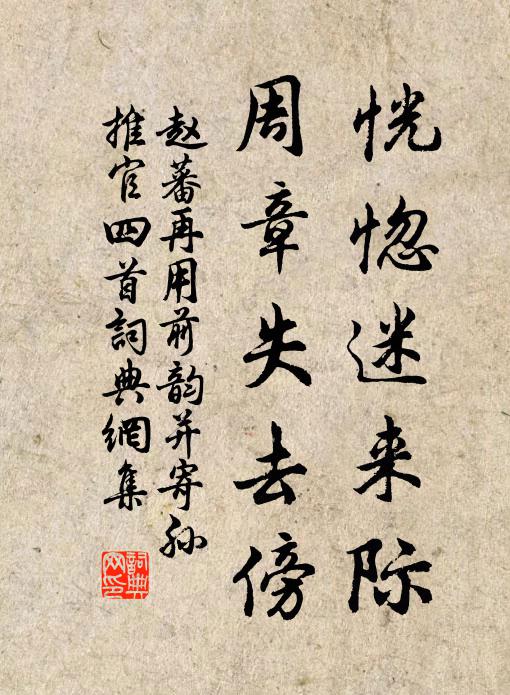 恍惚迷来际
周章失去傍
赵蕃再用前韵并寄孙
推官四首詞典網集
詞典
网印